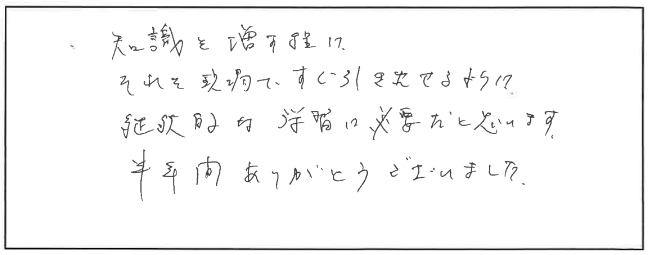 知識を増す程に
それを現場で、すぐ引き出せるように
継続的な学習が必要だと思います。
半年間ありがとうございました。